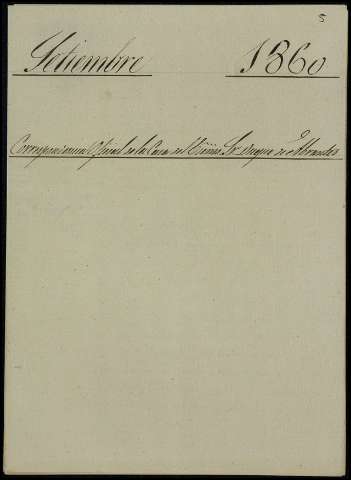 5
Setiembre 1860
Correspondencia Oficial de la Casa del Exmo. Sr. Duque de Abrantes